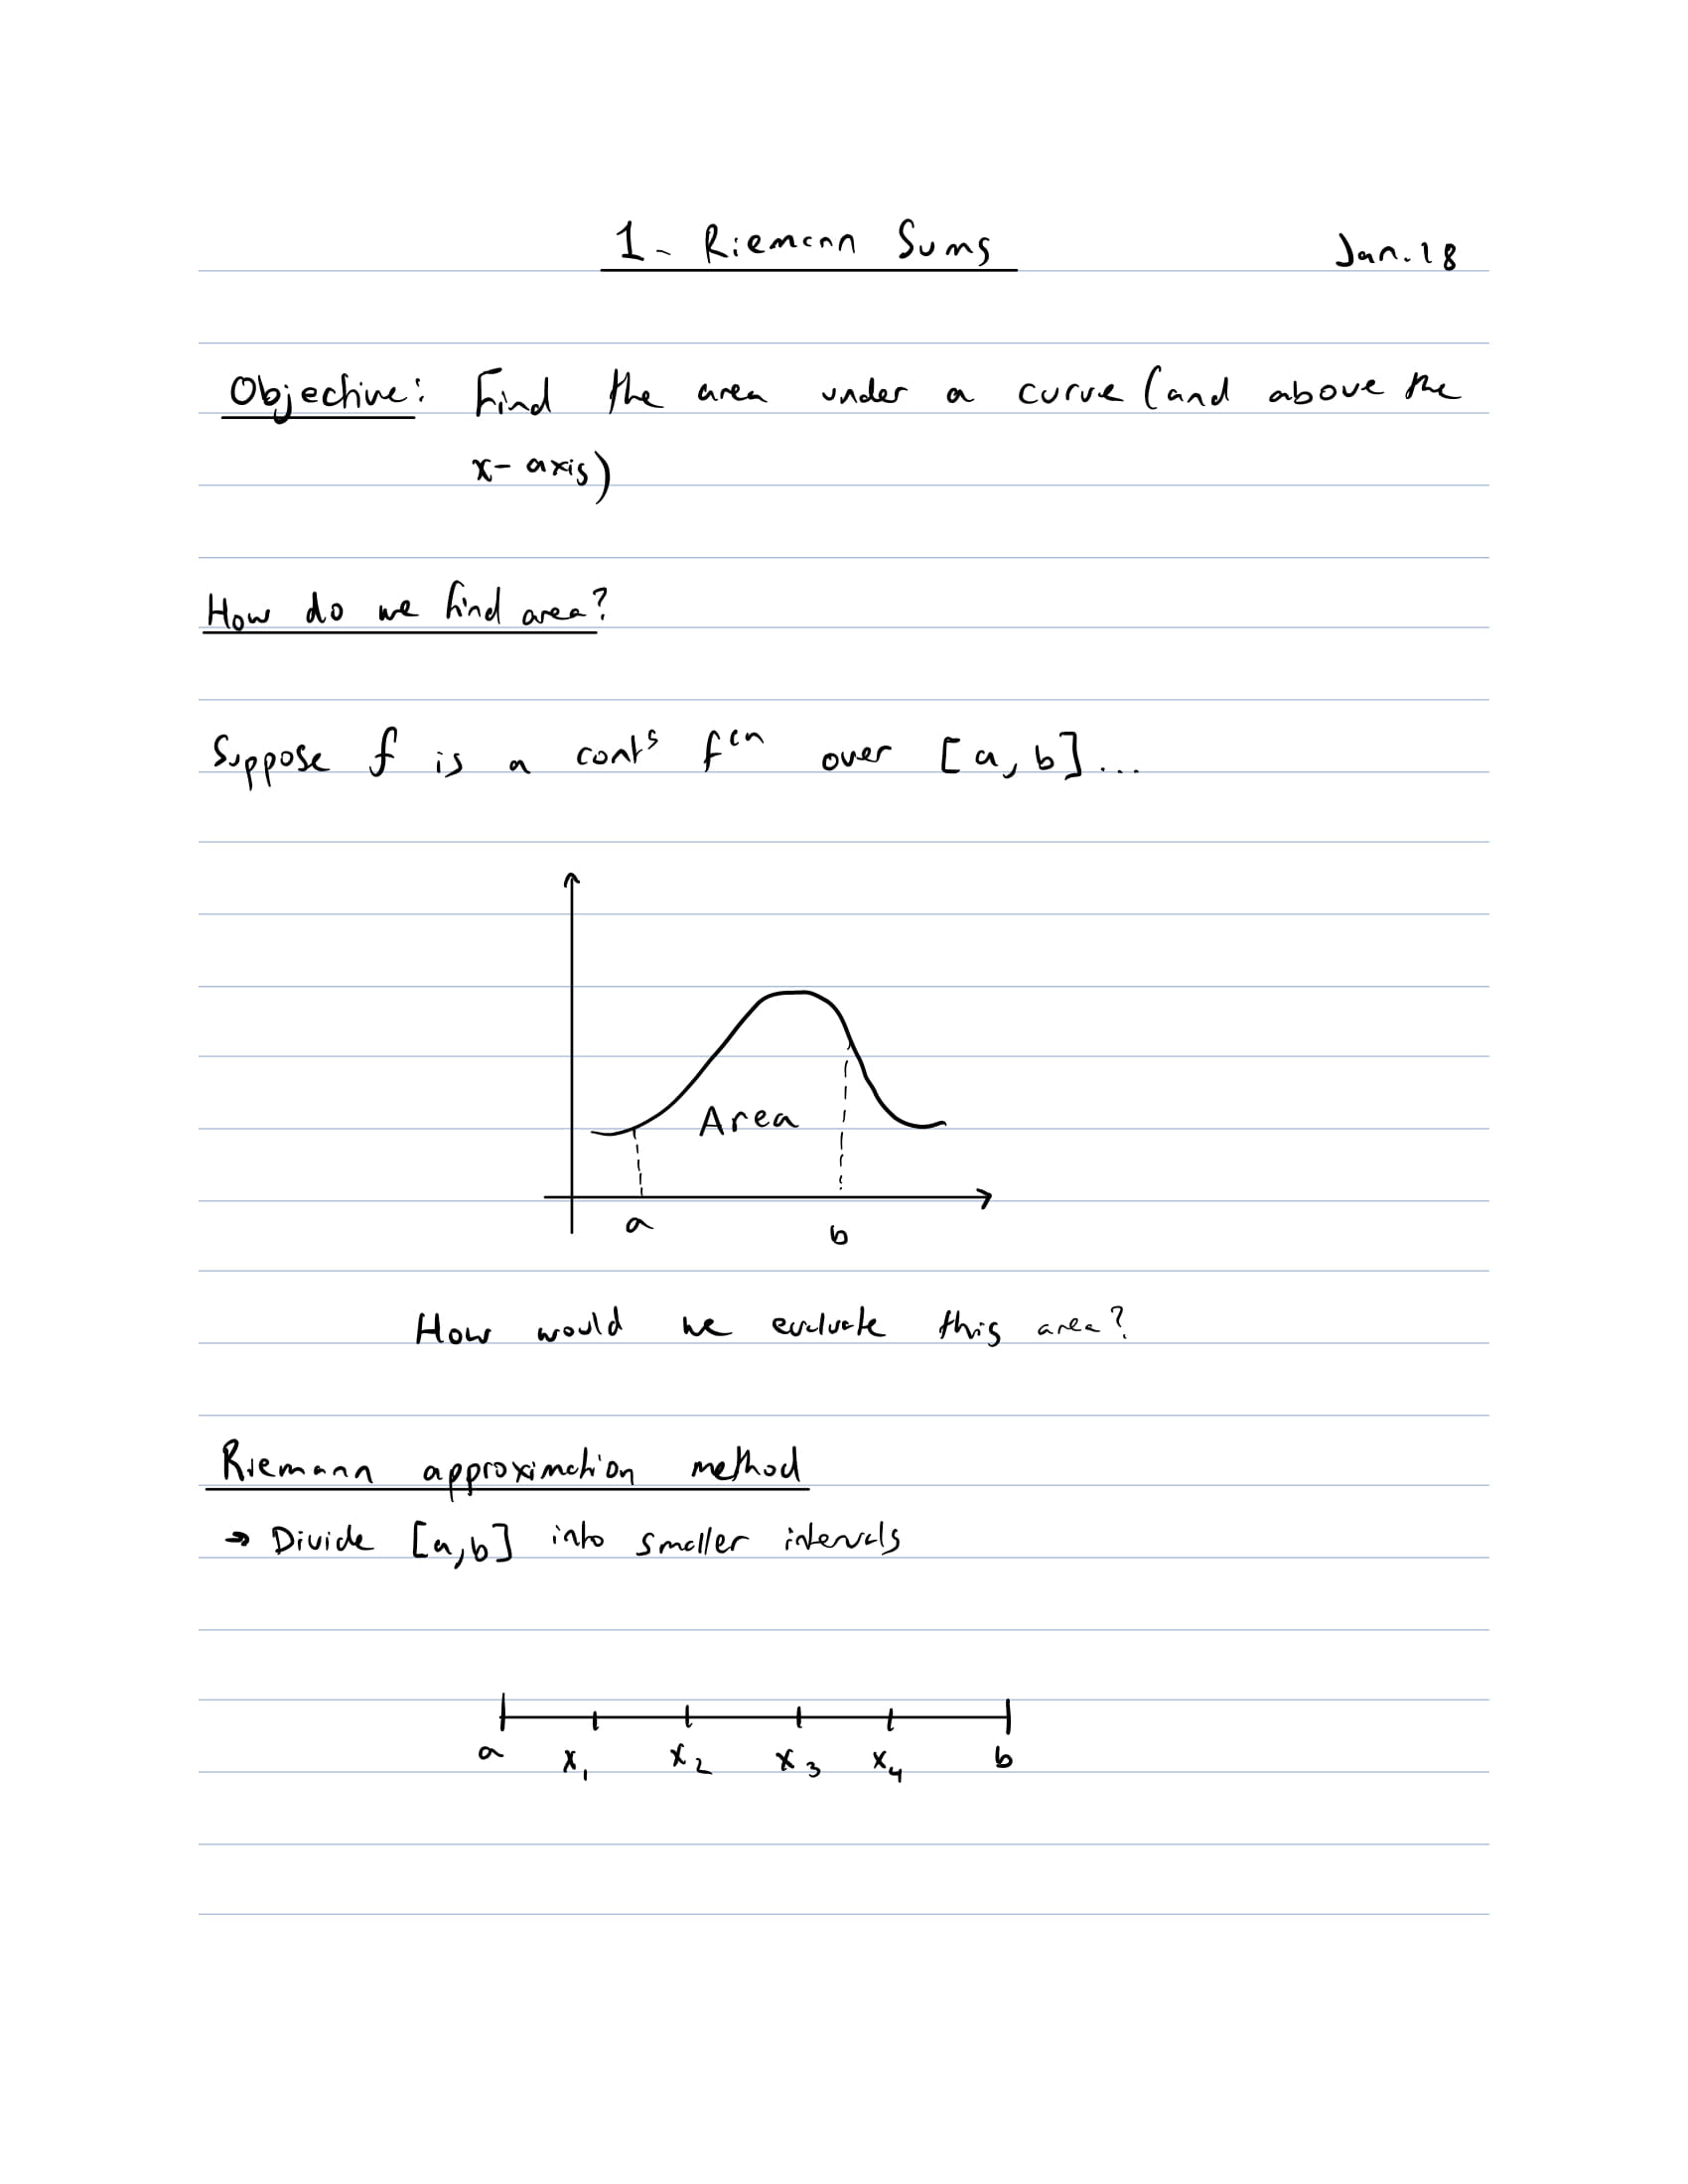 1- Riemann Sums Jan. 18
Objective: Find the area under a curve (and above the
x-axis)
How do we find area?
Suppose f is a contˢ fᶜⁿ over [a, b]...
Area
a b
How would we evaluate this area?
Riemann approximation method
→ Divide [a,b] into smaller intervals
a x₁ x₂ x₃ x₄ b